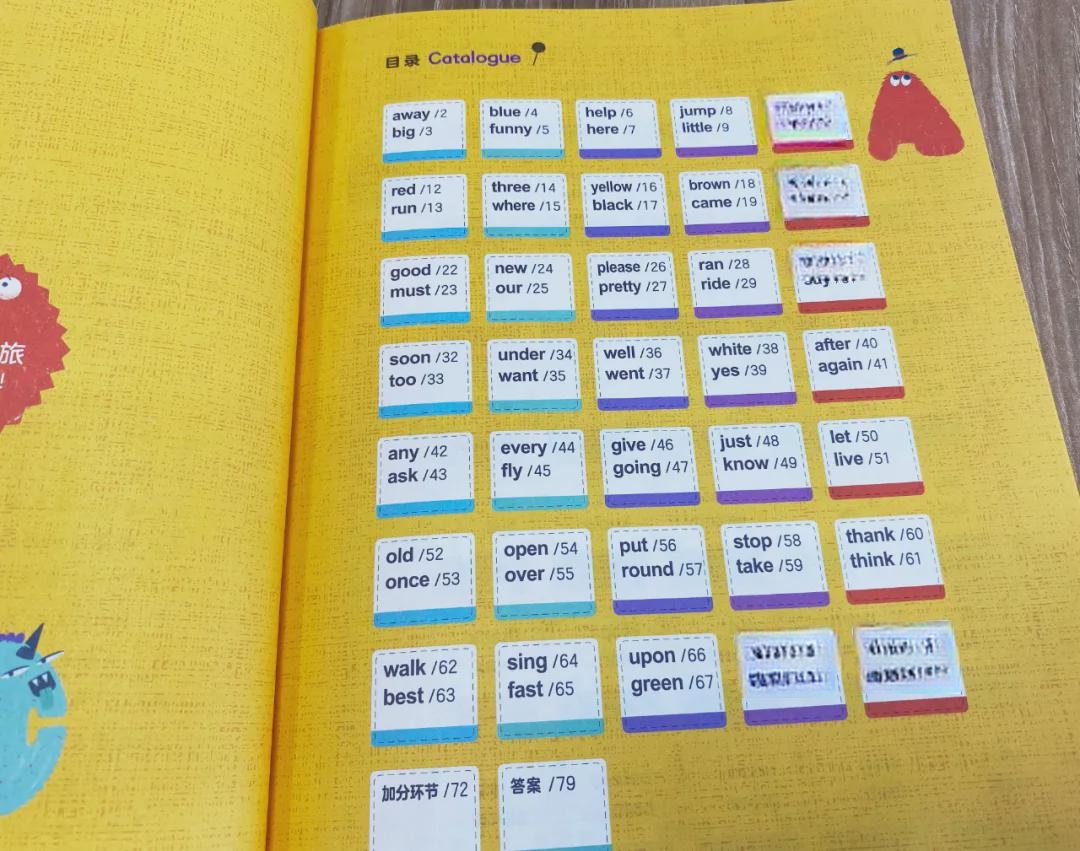 目录 Catalogue
away /2
big /3
blue /4
funny /5
help /6
here /7
jump /8
little /9
red /12
run /13
three /14
where /15
yellow /16
black /17
brown /18
came /19
good /22
must /23
new /24
our /25
please /26
pretty /27
ran /28
ride /29
soon /32
too /33
under /34
want /35
well /36
went /37
white /38
yes /39
after /40
again /41
any /42
ask /43
every /44
fly /45
give /46
going /47
just /48
know /49
let /50
live /51
old /52
once /53
open /54
over /55
put /56
round /57
stop /58
take /59
thank /60
think /61
walk /62
best /63
sing /64
fast /65
upon /66
green /67
加分环节 /72
答案 /79
旅
!